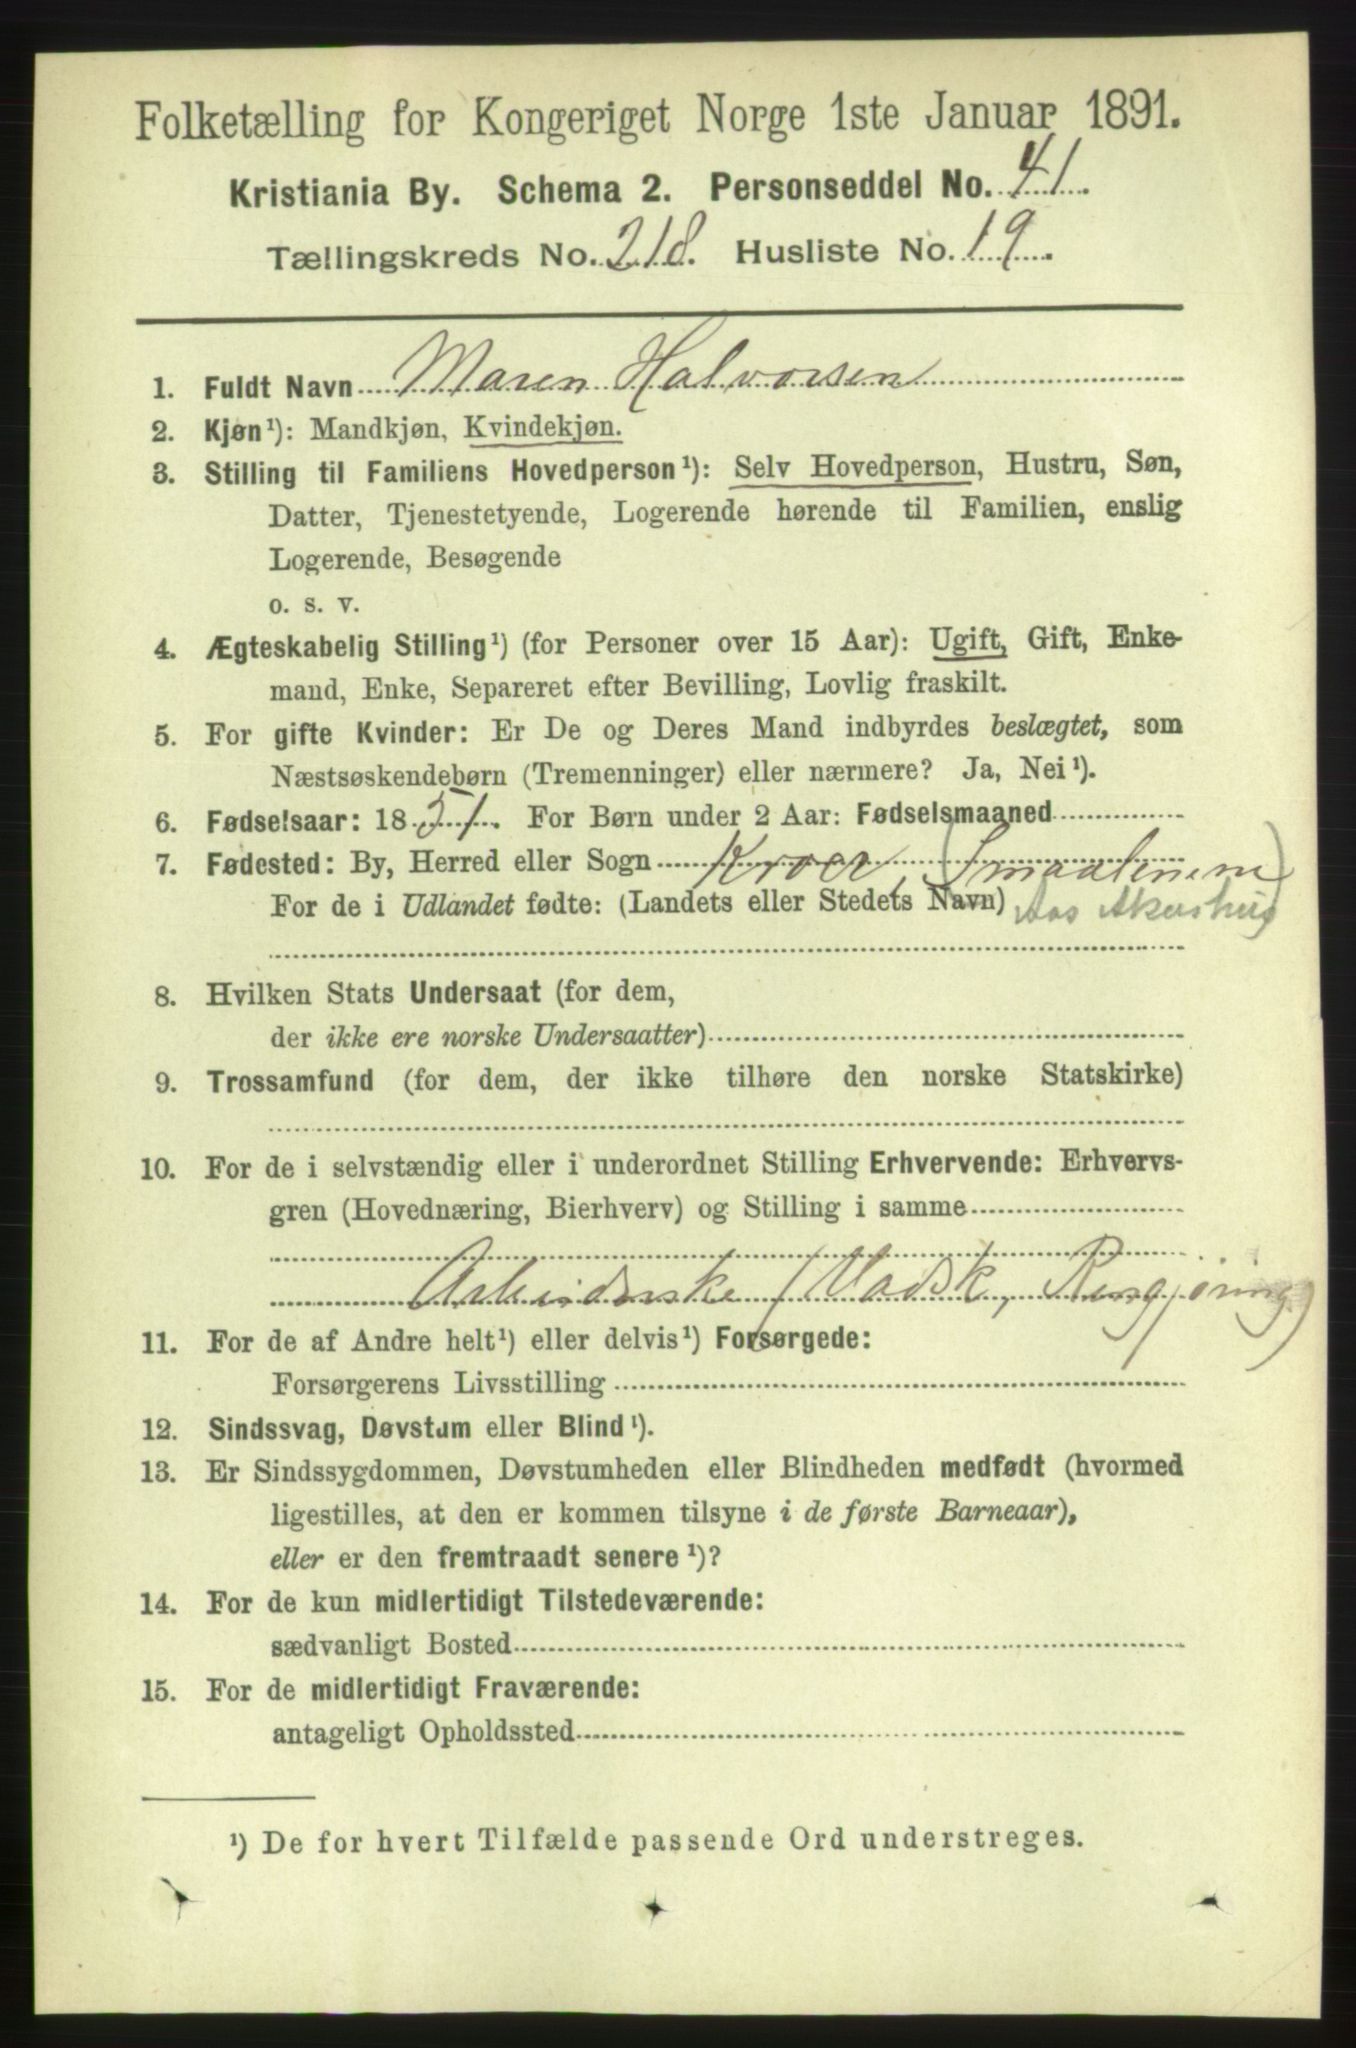 Folketælling for Kongeriget Norge 1ste Januar 1891.
Kristiania By. Schema 2. Personseddel No. 41.
Tællingskreds No. 218. Husliste No. 19.
1. Fuldt Navn Maren Halvorsen
2. Kjøn¹): Mandkjøn, Kvindekjøn.
3. Stilling til Familiens Hovedperson¹): Selv Hovedperson, Hustru, Søn,
Datter, Tjenestetyende, Logerende hørende til Familien, enslig
Logerende, Besøgende
o. s. v.
4. Ægteskabelig Stilling¹) (for Personer over 15 Aar): Ugift, Gift, Enke-
mand, Enke, Separeret efter Bevilling, Lovlig fraskilt.
5. For gifte Kvinder: Er De og Deres Mand indbyrdes beslægtet, som
Næstsøskendebørn (Tremenninger) eller nærmere? Ja, Nei¹).
6. Fødselsaar: 1851. For Børn under 2 Aar: Fødselsmaaned
7. Fødested: By, Herred eller Sogn Kroer (Smaalenene)
For de i Udlandet fødte: (Landets eller Stedets Navn) Aas Akershus)
8. Hvilken Stats Undersaat (for dem,
der ikke ere norske Undersaatter)
9. Trossamfund (for dem, der ikke tilhøre den norske Statskirke)
10. For de i selvstændig eller i underordnet Stilling Erhvervende: Erhvervs-
gren (Hovednæring, Bierhverv) og Stilling i samme
Arbeiderske (Vadsk, Rengjöring)
11. For de af Andre helt¹) eller delvis¹) Forsørgede:
Forsørgerens Livsstilling
12. Sindssvag, Døvstum eller Blind¹).
13. Er Sindssygdommen, Døvstumheden eller Blindheden medfødt (hvormed
ligestilles, at den er kommen tilsyne i de første Barneaar),
eller er den fremtraadt senere¹)?
14. For de kun midlertidigt Tilstedeværende:
sædvanligt Bosted
15. For de midlertidigt Fraværende:
antageligt Opholdssted
¹) De for hvert Tilfælde passende Ord understreges.